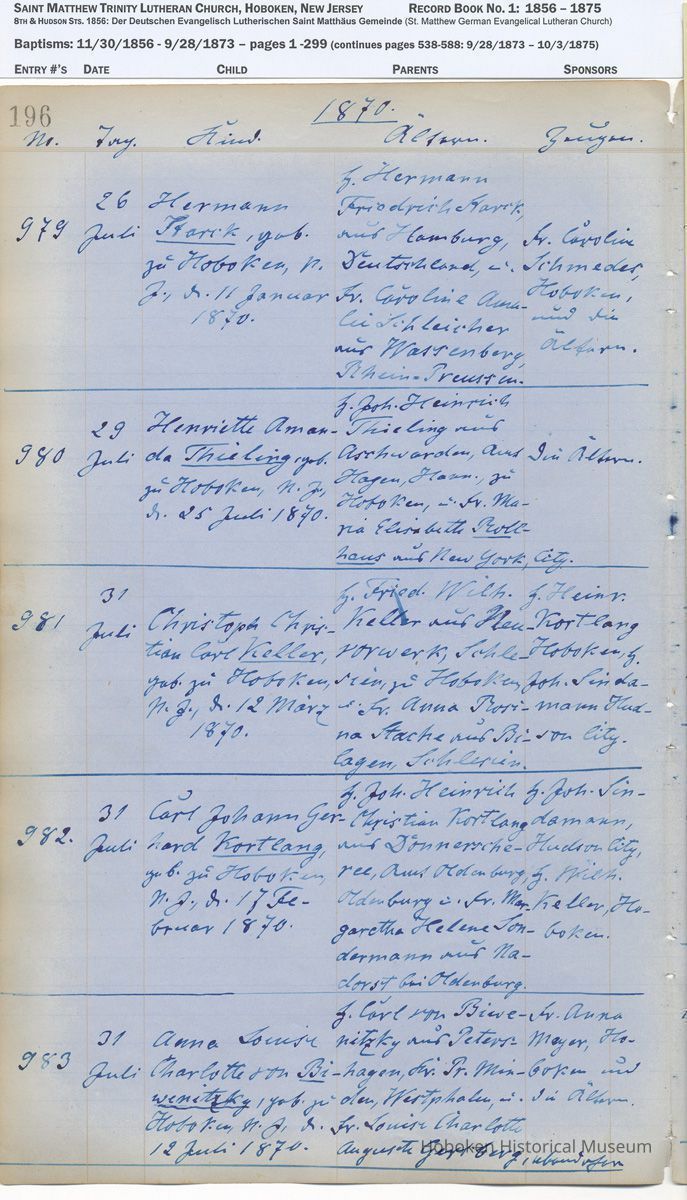 SAINT MATTHEW TRINITY LUTHERAN CHURCH, HOBOKEN, NEW JERSEY RECORD BOOK NO. 1: 1856 – 1875
8TH & HUDSON STS. 1856: Der Deutschen Evangelisch Lutherischen Saint Matthäus Gemeinde (St. Matthew German Evangelical Lutheran Church)
Baptisms: 11/30/1856 - 9/28/1873 – pages 1 -299 (continues pages 538-588: 9/28/1873 – 10/3/1875)
ENTRY #'S DATE CHILD PARENTS SPONSORS
196
1870.
No. Tag. Kind. Ältern. Zeugen.
979
26
Juli
Hermann
Karck, geb.
zu Hoboken, N.
J., d. 11 Januar
1870.
H. Hermann
Friedrich Karck,
aus Hamburg,
Deutschland, u.
Fr. Caroline Ama-
lie Schleicher
aus Wassenberg,
Rhein-Preussen.
Fr. Carolin
Schmedes,
Hoboken,
und die
Ältern.
980
29
Juli
Henriette Aman-
da Thieling, geb.
zu Hoboken, N. J.,
d. 25 Juli 1870.
H. Joh. Heinrich
Thieling aus
Aschwarden, Amt
Hagen, Hann., zu
Hoboken, u. Fr. Ma-
ria Elisabeth Roll-
haus aus New York, City.
Die Ältern.
981
31
Juli
Christoph Chris-
tian Carl Keller,
geb. zu Hoboken,
N. J., d. 12 März
1870.
H. Fried. Wilh.
Keller aus Neu-
vorwerk, Schle-
sien, zu Hoboken,
u. Fr. Anna Rosi-
na Stache aus Bi-
lagen, Schlesien.
H. Heinr.
Kortlang
Hoboken, H.
Joh. Sinda-
mann Hud-
son City.
982.
31
Juli
Carl Johann Ger-
hard Kortlang,
geb. zu Hoboken,
N. J., d. 17 Fe-
bruar 1870.
H. Joh. Heinrich
Christian Kortlang
aus Donnersche-
ree, Amt Oldenburg,
Oldenburg u. Fr. Mar-
garetha Helene Son-
dermann aus Na-
dorst bei Oldenburg.
H. Joh. Sin-
damann,
Hudson City,
H. Wilh.
Keller, Ho-
boken.
983
31
Juli
Anna Louise
Charlotte von Bi-
wenitzky, geb. zu
Hoboken, N. J., d.
12 Juli 1870.
H. Carl von Biwe-
nitzky aus Peters-
hagen, Kr. Pr. Min-
den, Westphalen, u.
Fr. Louise Charlotte
Auguste
Fr. Anna
Meyer, Ho-
boken und
die Ältern.
Hoboken Historical Museum